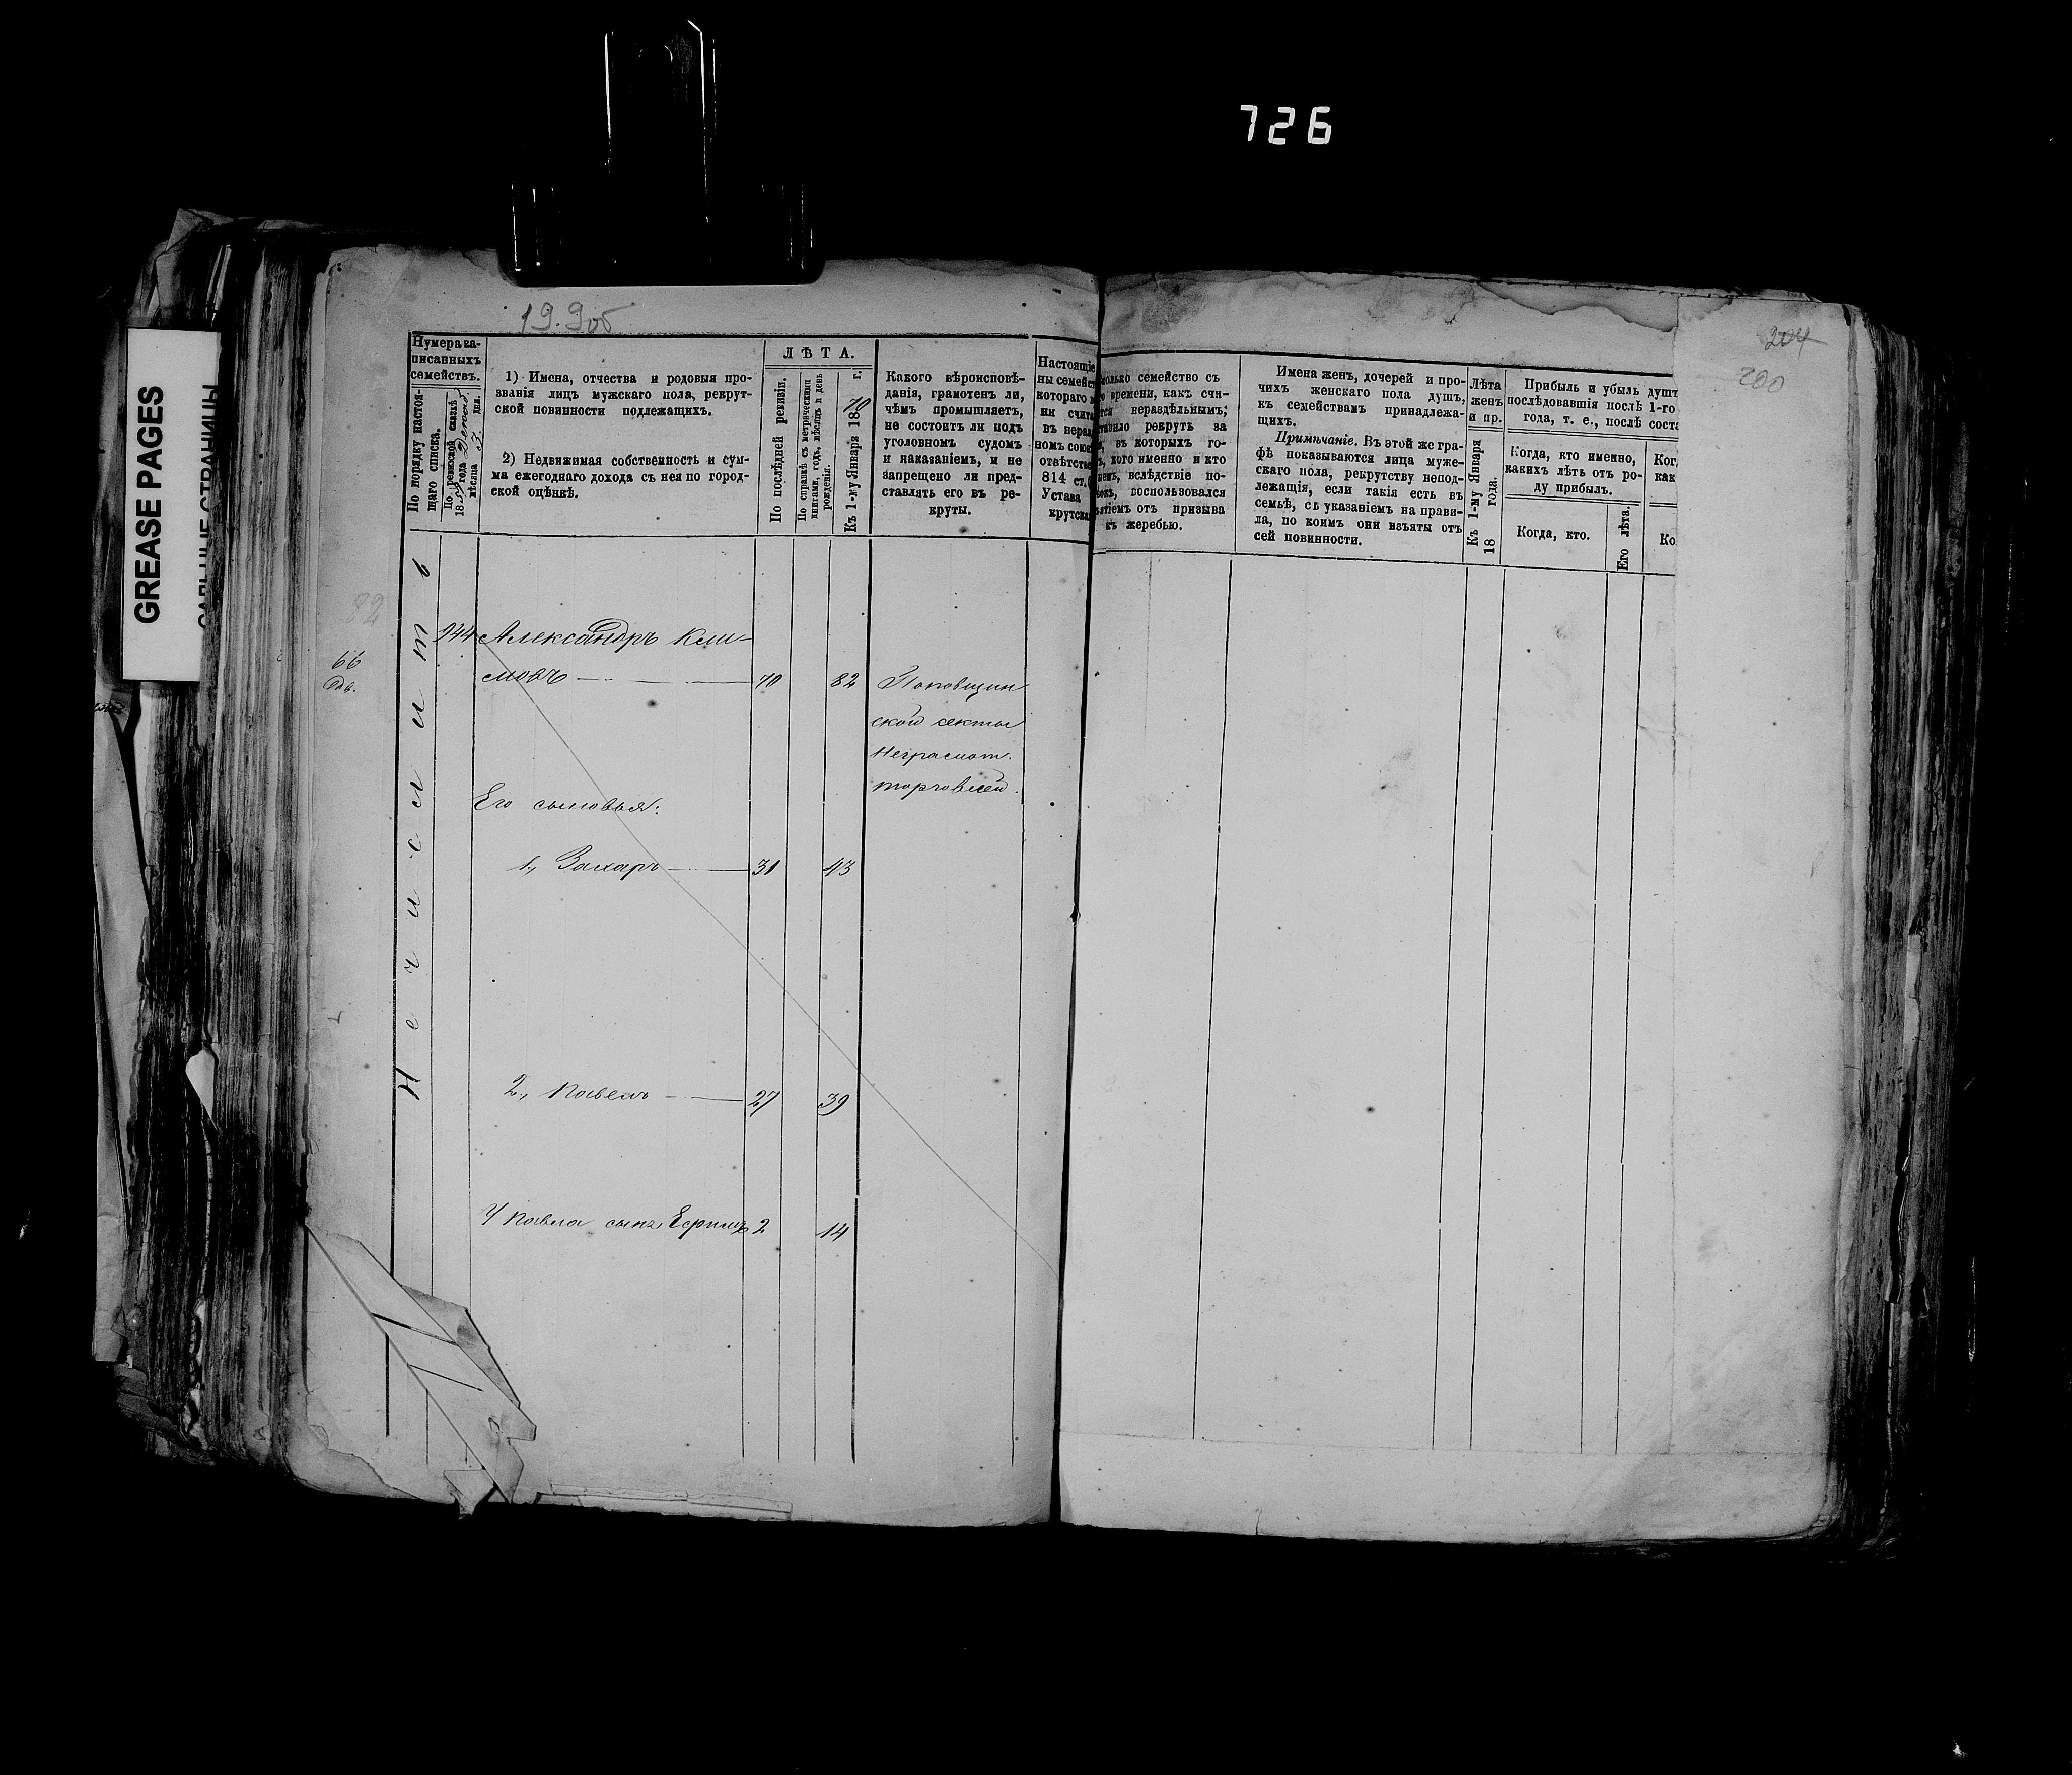 726
GREASE PAGES
САЛЬНЫЕ СТРАНИЦЫ
199об
204
200
Нумера за-
писанныхъ
семействъ.
По порядку настоя-
щаго списка.
По ревизской сказкѣ
18 года
мѣсяца 3 дня.
1) Имена, отчества и родовыя про-
званія лицъ мужскаго пола, рекрут-
ской повинности подлежащихъ.
2) Недвижимая собственность и сум-
ма ежегоднаго дохода съ нея по город-
ской оцѣнкѣ.
ЛѢТА.
По послѣдней ревизіи.
По справкѣ съ метрическими
книгами, годъ, мѣсяцъ и день
рожденія.
Къ 1-му Января 1870 г.
Какого вѣроисповѣ-
данія, грамотенъ ли,
чѣмъ промышляетъ,
не состоитъ ли подъ
уголовномъ судомъ
и наказаніемъ, и не
запрещено ли пред-
ставлять его въ ре-
круты.
Настоящіе
ны семейст
котораго
ни счита
въ нераз
номъ союз
отвѣтстве
814 ст.
Устава
крутска
колько семейство съ
о времени, какъ счи-
тся нераздѣльнымъ,
тавило рекрутъ за
, въ которыхъ го-
ъ, кого именно и кто
ленъ, вслѣдствіе по-
воспользовался
ятіемъ отъ призыва
къ жеребью.
Имена женъ, дочерей и про-
чихъ женскаго пола душъ,
къ семействамъ принадлежа-
щихъ.
Примѣчаніе. Въ этой же гра-
фѣ показываются лица муже-
скаго пола, рекрутству непод-
лежащія, если такія есть въ
семьѣ, съ указаніемъ на прави-
ла, по коимъ они изъяты отъ
сей повинности.
Лѣта
женъ
и пр.
Къ 1-му Января
18 года.
Прибыль и убыль душъ
послѣдовавшія послѣ 1-го
года, т. е., послѣ соста
Когда, кто именно,
какихъ лѣтъ отъ ро-
ду прибылъ.
Когда, кто.
Его лѣта.
Ког
как
Ко
Не числитъ
82
66
144 Александръ Кли-
мовъ 70 82
Поповщин
ской секты
Неграмот.
торговлей.
Его сыновья:
1., Захаръ 31 43
2., Павелъ 27 39
У Павла сынъ Ефимъ 2 14